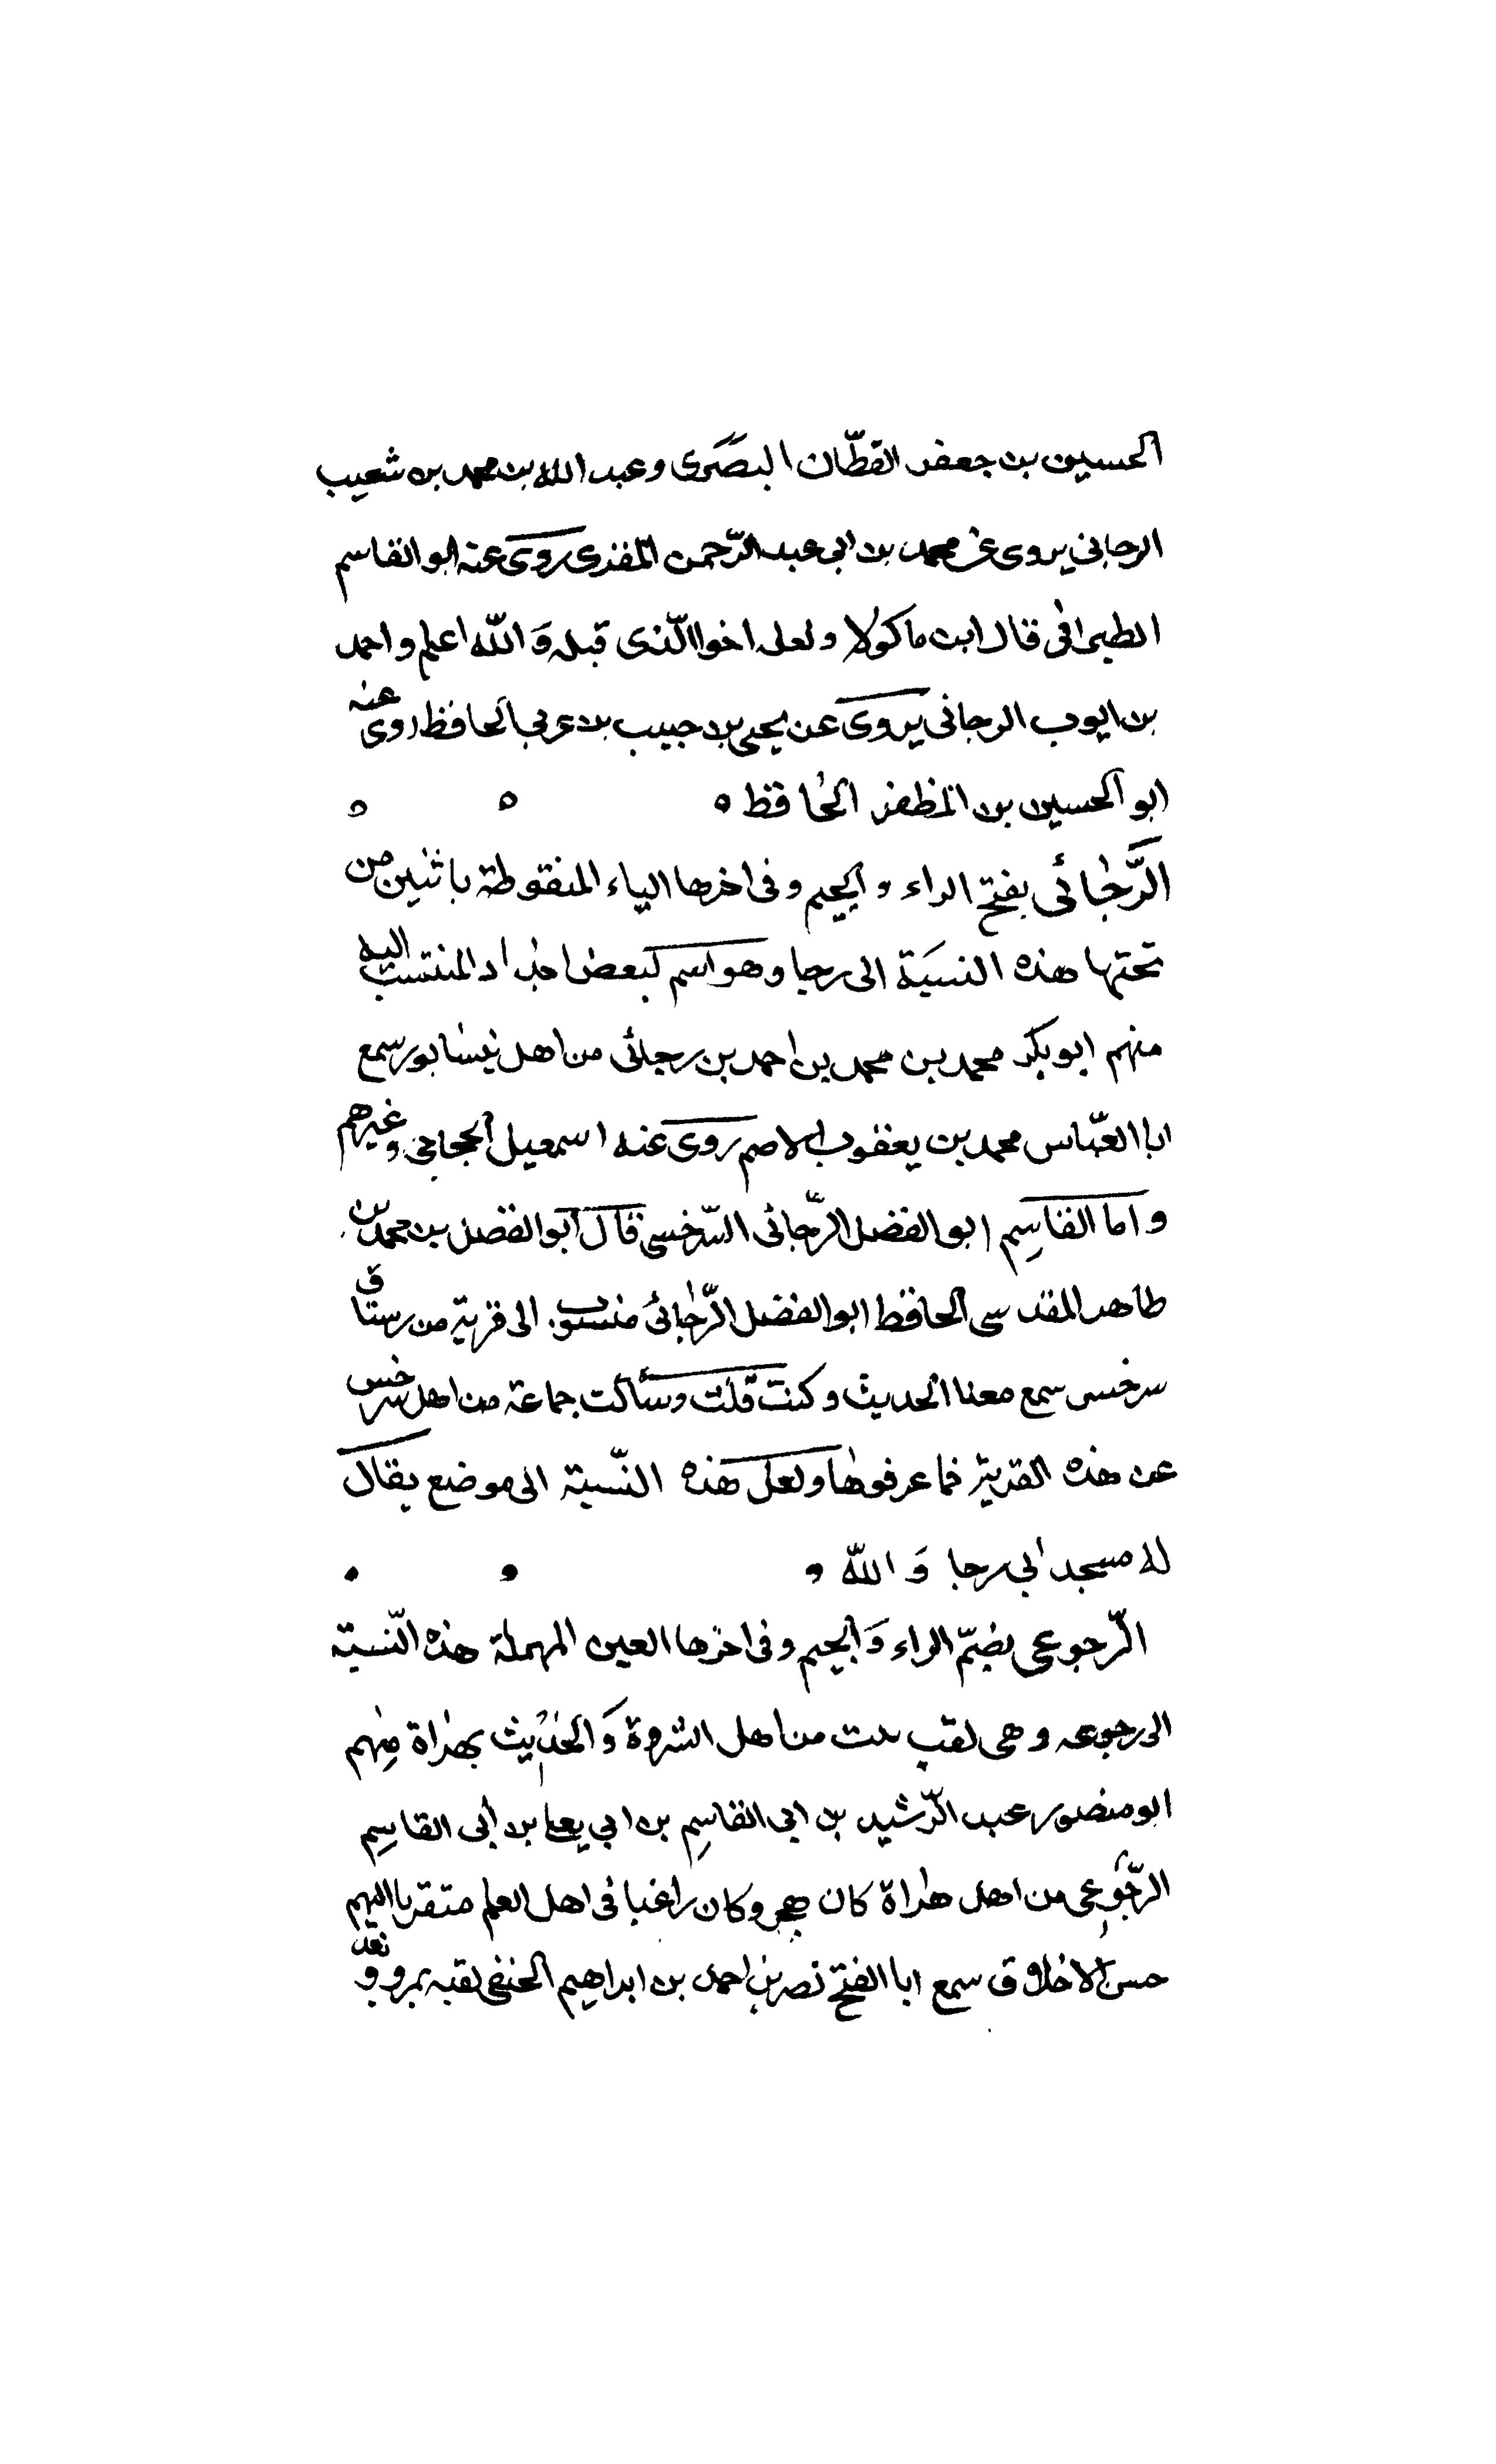 الحسين بن جعفر القطّان البصَرى وعبد الله بن محمد بن شعيب
الرجانى يروى عن محمد بن ابى عبد الرّحمن المقرى روى عنه ابو القاسم
الطبرانى قال ابن ماكولا ولعله اخو الّذى قبله وَ اللّه اعلم و احمد
بن ايوب الرجانى يروى عن يحيى بن حبيب بن عربى الحافظ روى عنه
ابو الحسين بن المظفر الحافظ ه ه ه
الرَّجائى بفتح الراء و الجيم وفى اخرها الياء المنقوطة باثنين من
تحتها هذه النسَبة الى رجا وهو اسم لبعض اجداد المنتسب اليه
منهم ابو بكر محمد بن محمد بن احمد بن رجائى من اهل نيسابور سمع
ابا العبّاس محمد بن يعقوب الاصم روى عنه اسمعيل الحجاجى وغيرهم
واما القاسِم ابو الفضل الرّجائى السّرخسى قال ابو الفضل بن محمد بن
طاهر المقدسى الحافظ ابو الفضل الرّجائى منسوب الى قرية من رستاق
سرخس سمع معنا الحديث و كنت قلت وسألت جماعة من اهل سرخس
عن هذه القرية فما عرفوها ولعل هذه النّسبة الى موضع يقال
له مسجد ابى رجا وَ اللّه
الرّجوعى بضمّ الراء وَ الجيم وفى اخرها العين المهملة هذه النّسبة
الى رجوعه وهى لقب بيت من اهل الثروة وَ الحديث بهراة مِنهم
ابو منصور عبد الرّشيد بن ابى القاسِم بن ابى يعلى بن أبى القاسِم
الرّجُوعِى من اهل هراة كان وكان راغبا فى اهل العلم متقربا اليهم
حسن الاخلاق سمع ابا الفتح نصر بن احمد بن ابراهيم الحنفى لقبه بمرو و